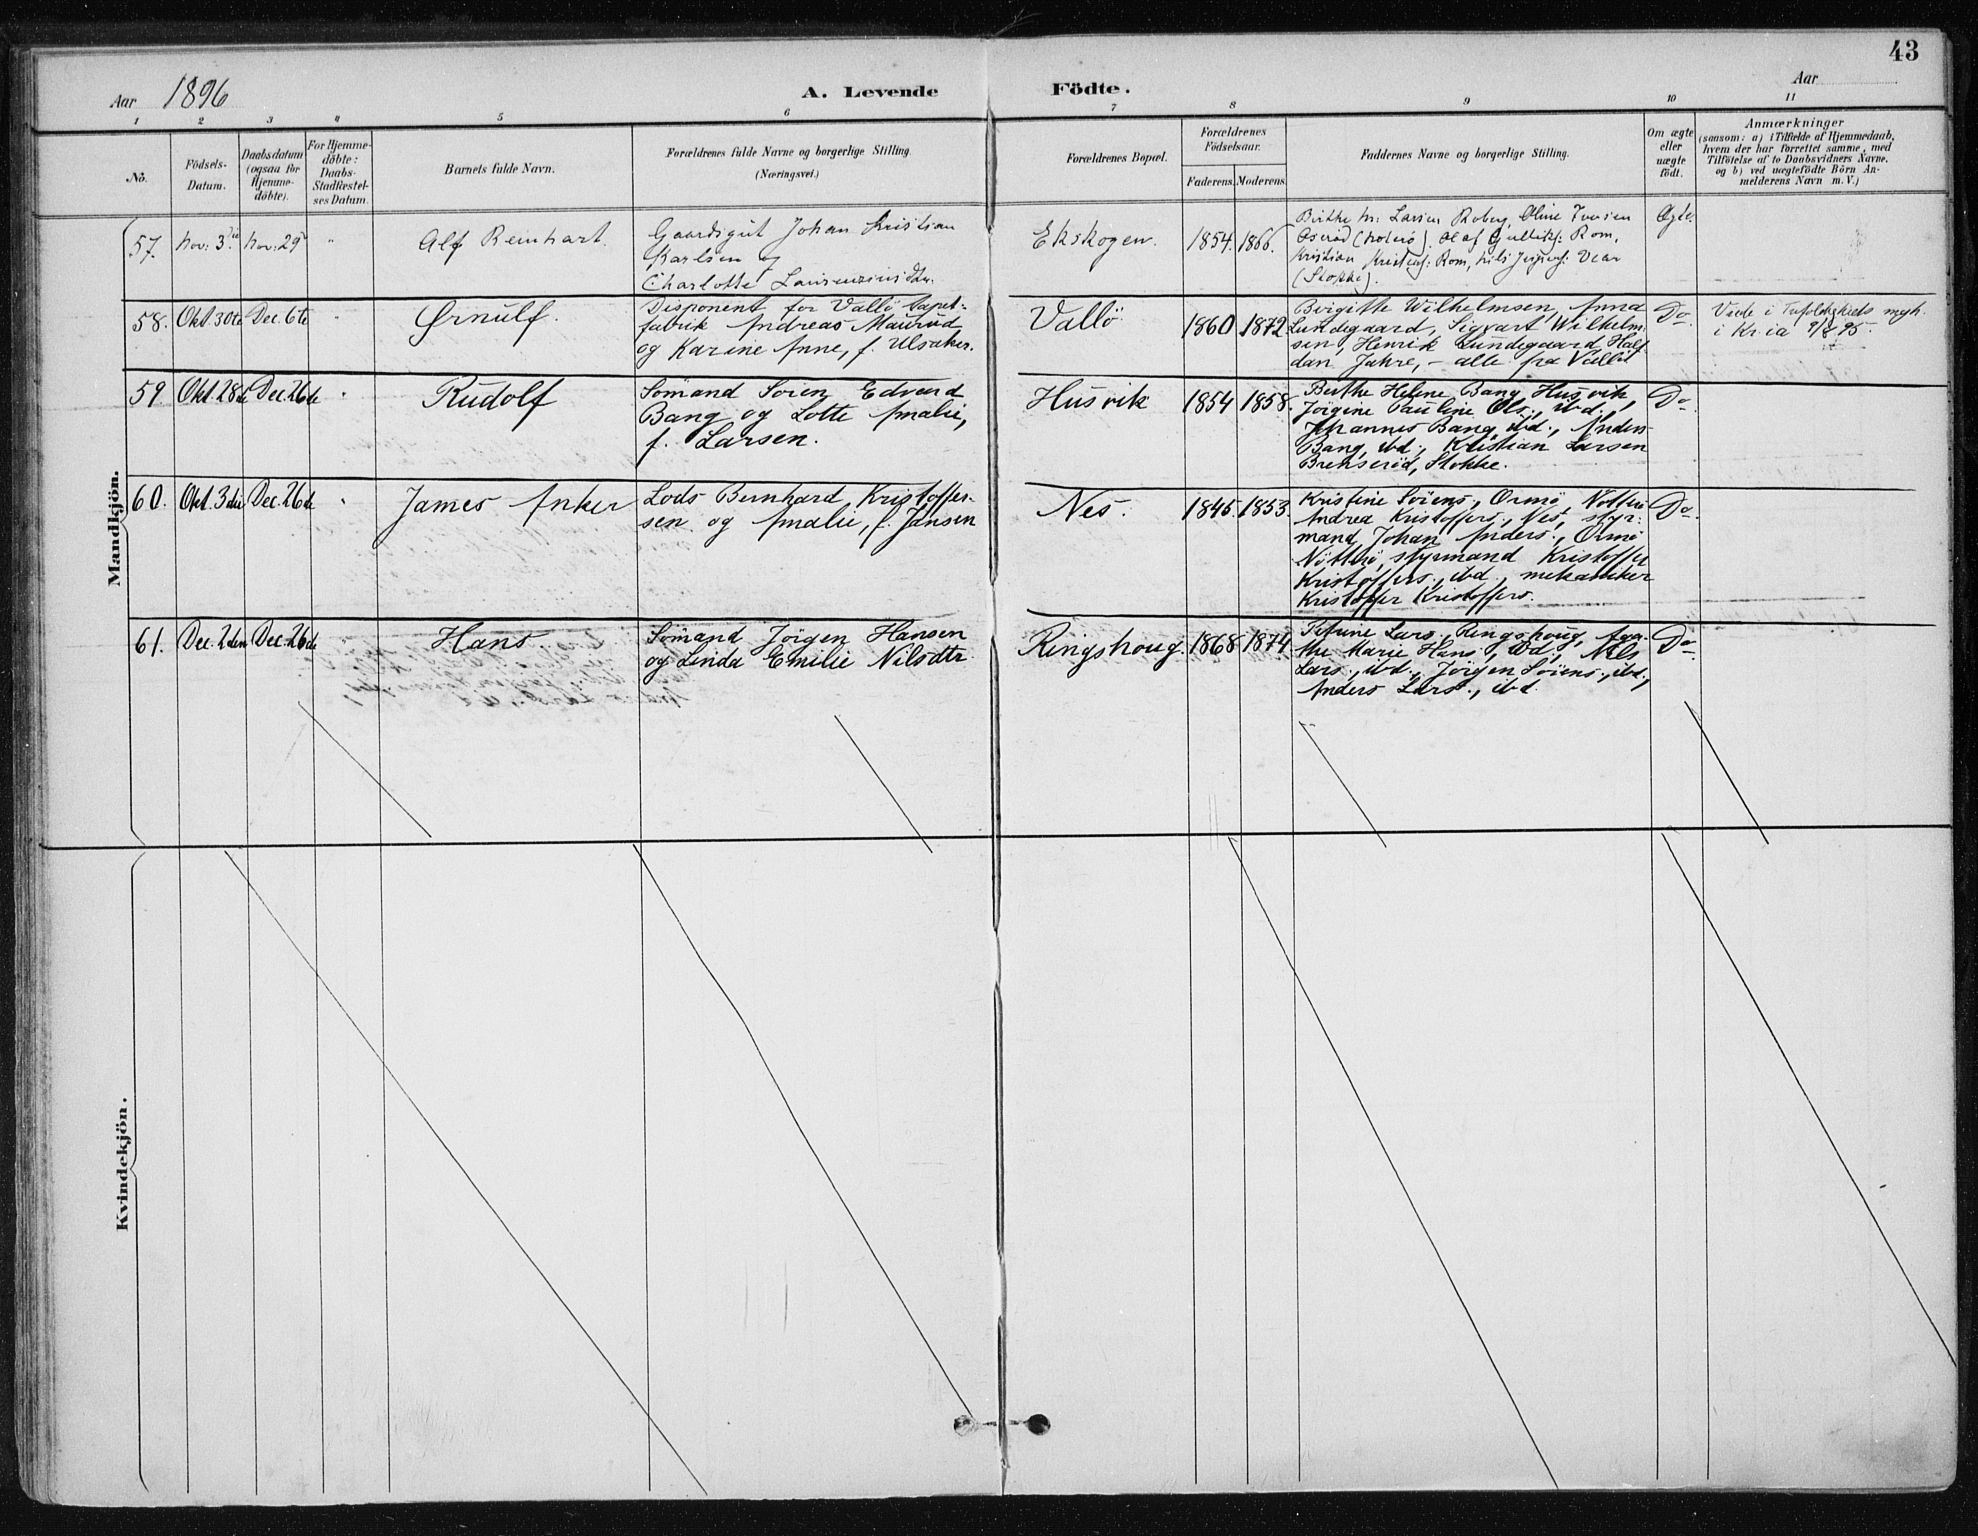 43
Aar 1896
A. Levende
Födte.
Aar
1 2 3 4 5 6 7 8 9 10 11
No.
Födsels-
Datum.
Daabsdatum
(ogsaa for
Hjemme-
døbte).
For Hjemme-
døbte:
Daabs-
Stadfestel-
ses Datum.
Barnets fulde Navn.
Forældrenes fulde Navne og borgerlige Stilling.
(Næringsvei.)
Forældrenes Bopæl.
Forældrenes
Födselsaar.
Faderens. Moderens.
Faddernes Navne og borgerlige Stilling.
Om ægte
eller
uægte
födt.
Anmærkninger
(saasom: a) i Tilfælde af Hjemmedaab,
hvem der har forrettet samme, med
Tilföielse af to Daabsvidners Navne,
og b) ved uægtefödte Börn An-
melderens Navn m. V.)
Mandkjön.
57. Nov: 3die Nov: 29 " Alf Reinhart.
Gaardsgut Johan Kristian
Karlsen og
Charlotte Laurenziusdtr.
Ekskogen. 1854. 1866.
Birthe Larsen Roberg, Oline Iversen
Oserød (Noterø). Olaf Gulliks: Rom,
Kristian Kristens: Rom, Nils Jörgens: Vear
(Stokke).
Ægte.
58. Okt. 30te Dec. 6te " Ørnulf.
Disponent for Vallö tapet-
fabrik Andreas Maurud
og Karine Anne, f. Ulsaker.
Vallö 1860 1872
Birgitte Wilhelmsen, Anna
Lundegaard, Sigvart Wilhelm-
sen, Henrik Lundegaard, Half
dan Jahre, – alle fra Vallö
Do.
Viede i Trefoldigheds mgh.
i Kr.ia 95.
59 Okt. 28de Dec. 26de " Rudolf
Sömand Sören Edvard
Bang og Lotte Amalie,
f. Larsen.
Husvik 1854 1858.
Berthe Helene Bang, Husvik,
Jörgine Pauline Ols., ibd.,
Johannes Bang ibd., Anders
Bang, ibd., Kristian Larsen
Brekseröd, Stokke.
Do.
60. Okt. 3die Dec. 26de " James Anker
Lods Bernhard Kristoffer-
sen og Amalie, f. Jansen
Nes. 1845. 1853.
Kristine Sörens., Ormö, Nötterö
Andrea Kristoffers., Nes, styr-
mand Johan Anders., Ormö
Nötterö, styrmand Kristoffer
Kristoffers., ibd., mekaniker
Kristoffer Kristoffers.
Do.
61. Dec. 2den Dec. 26de Hans
Sömand Jörgen Hansen
og Linda Emilie Nilsdtr.
Ringshoug. 1868 1874
Petrine Lars., Ringshoug, Aga-
the Marie Hans., ibd., Nils
Lars., ibd., Jörgen Sörens., ibd.,
Anders Lars., ibd.
Do.
Kvindekjön.